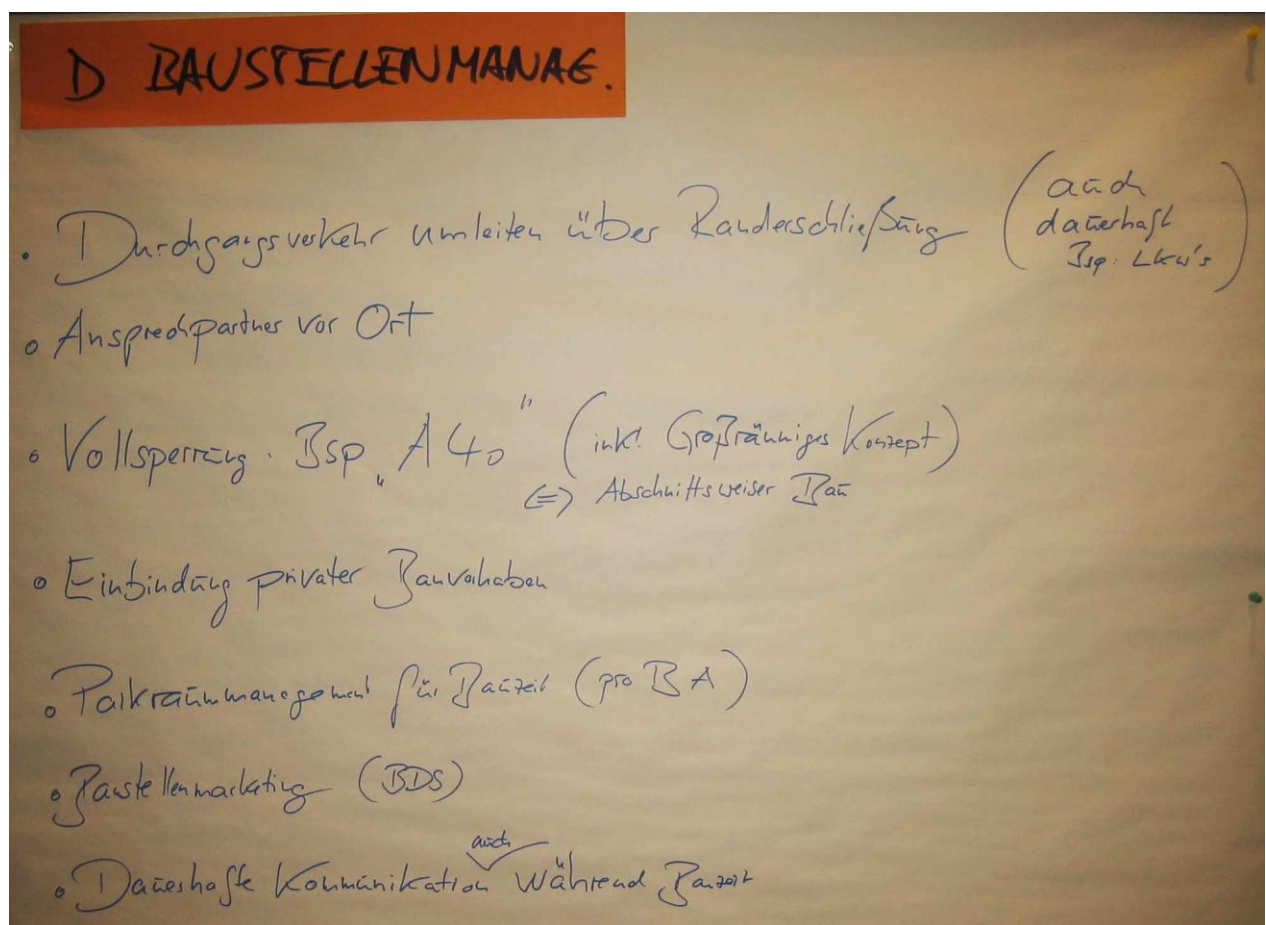 D BAUSTELLENMANAG.
• Durchgangsverkehr umleiten über Randerschließung (auch
dauerhaft
Bsp: LKW's)
• Ansprechpartner vor Ort
• Vollsperrung. Bsp „A40" (inkl. Großräumiges Konzept)
<=> Abschnittsweiser Bau
• Einbindung privater Bauvorhaben
• Parkraummanagement für Bauzeit (pro BA)
• Baustellenmarketing (BDS)
auch
• Dauerhafte Kommunikation während Bauzeit